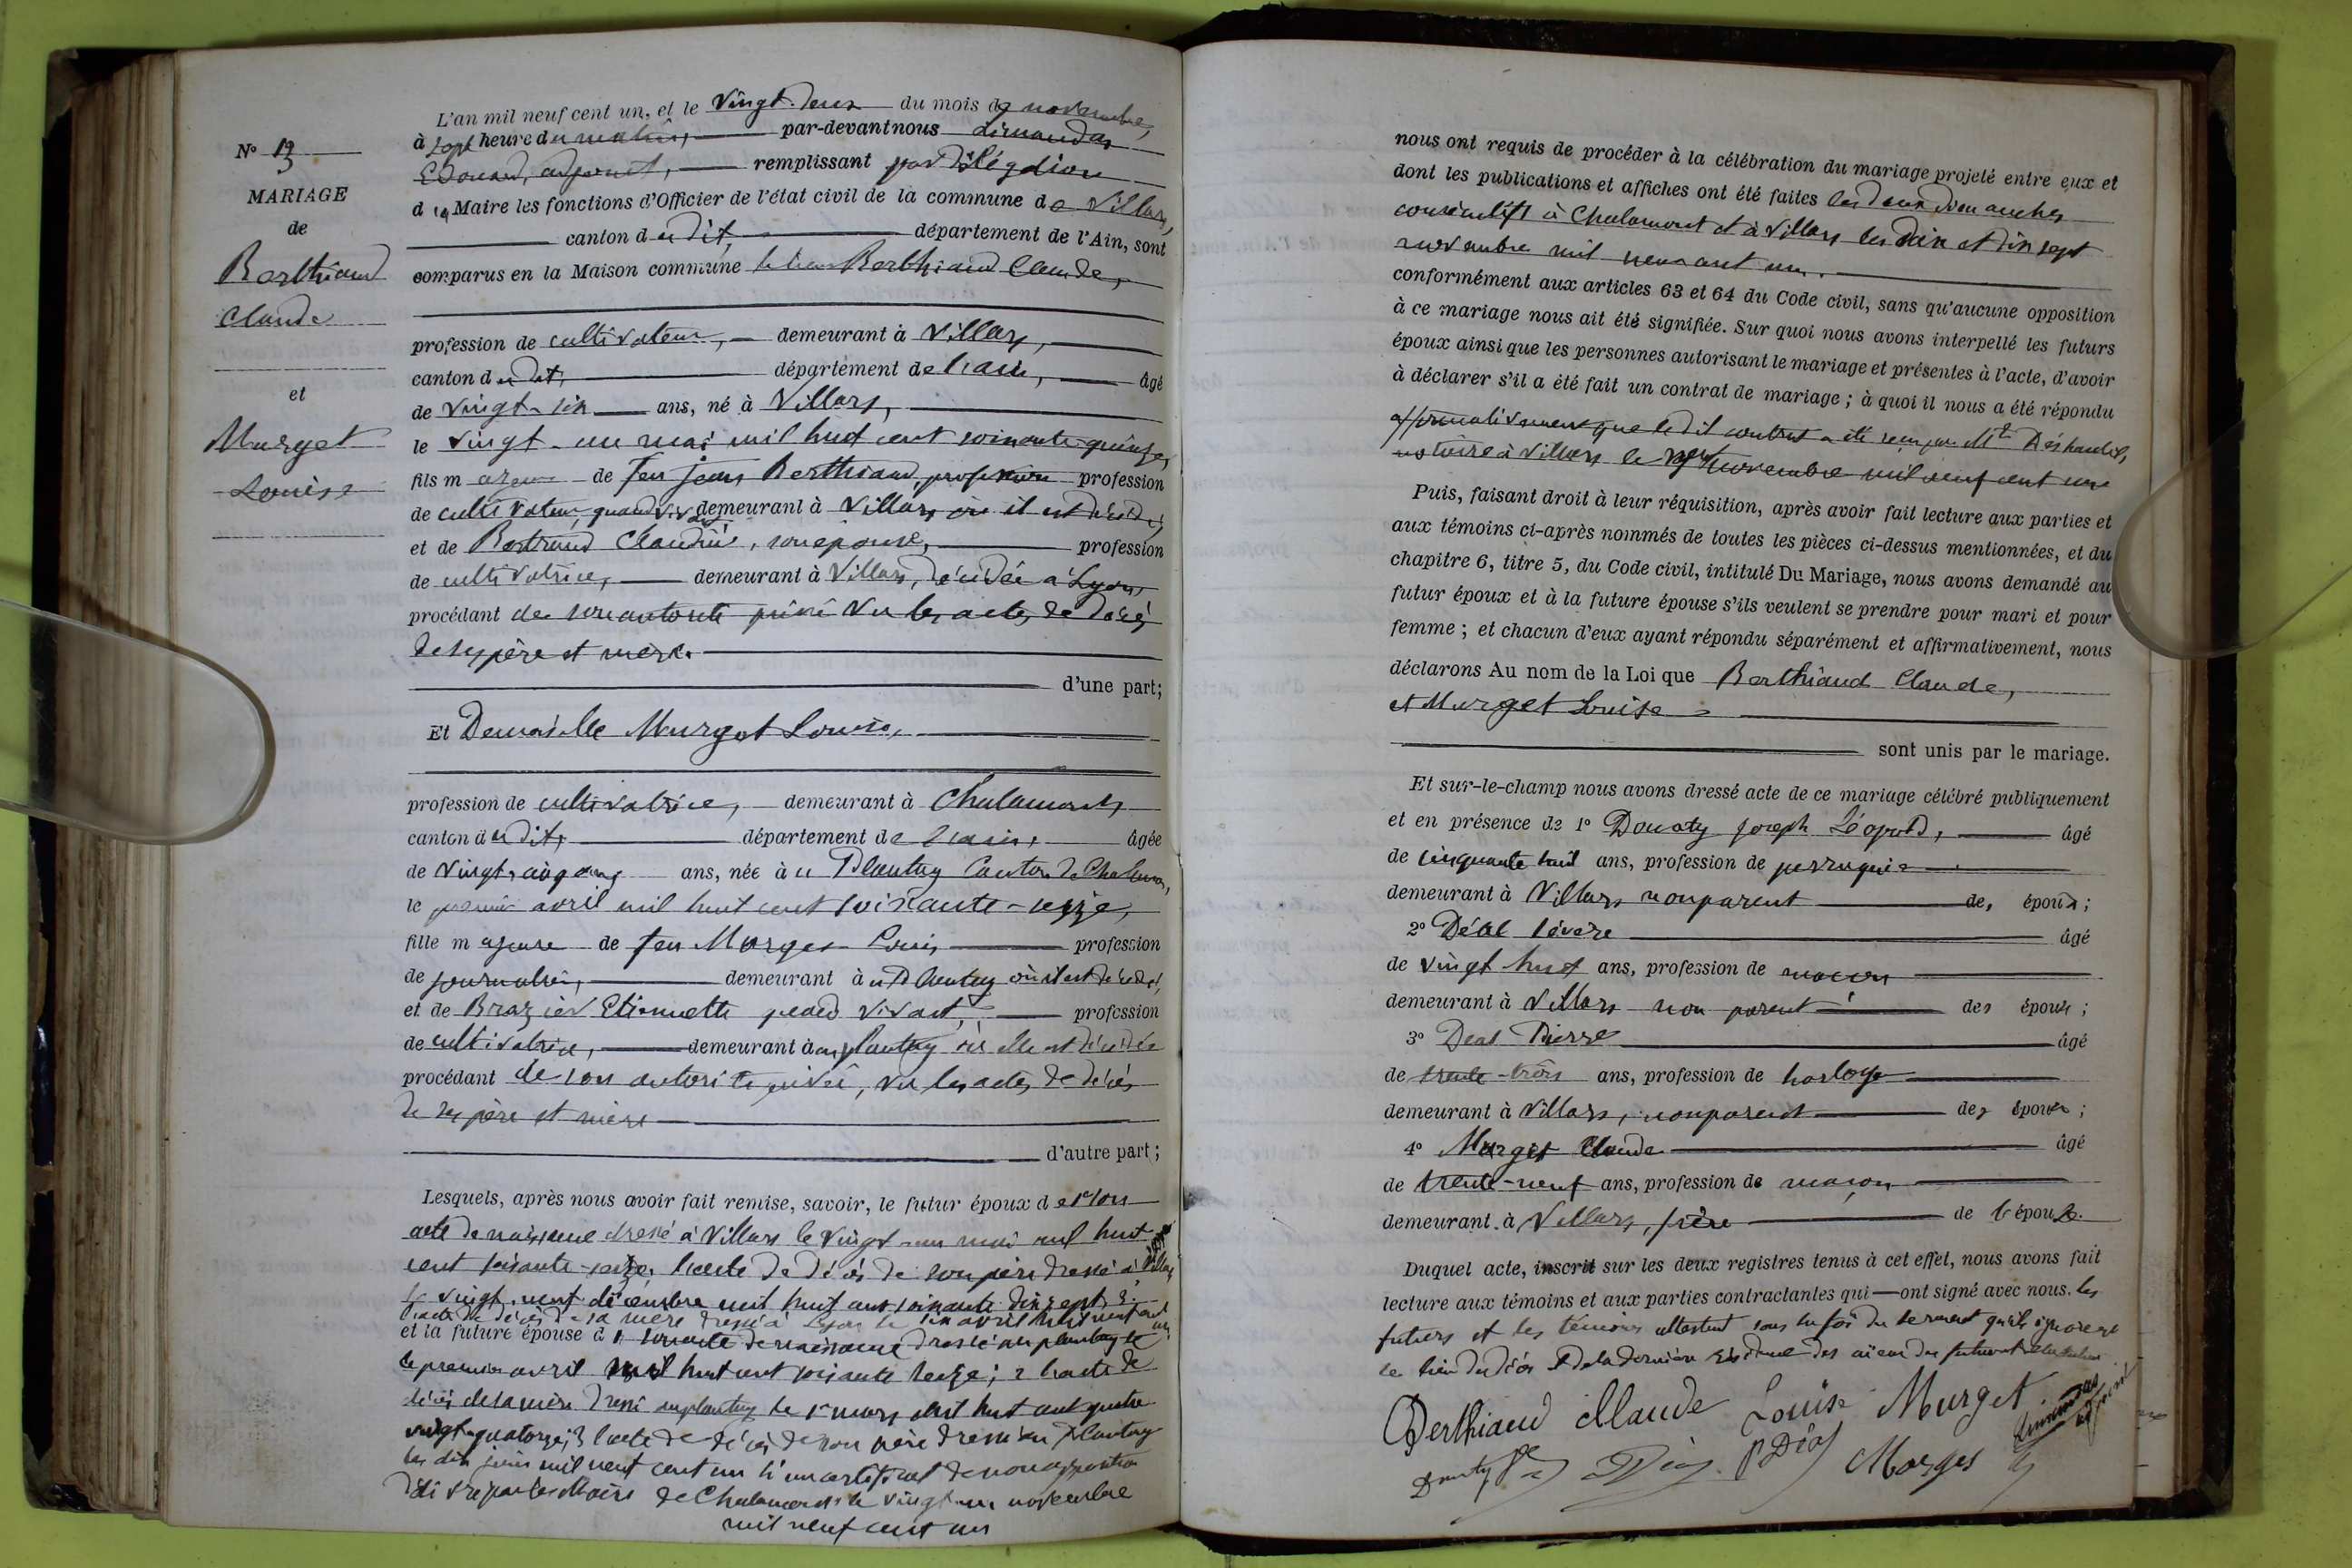 N° 13
MARIAGE
de
Berthiand
Claude
et
Murget
Louise
L'an mil neuf cent un, et le vingt-deux du mois de novembre,
à sept heure du matin, par-devant nous Limandas
Edouard, adjoint, remplissant par délégation
du Maire les fonctions d'Officier de l'état civil de la commune de Villars,
canton dudit, département de l'Ain, sont
comparus en la Maison commune le sieur Berthiand Claude,
profession de cultivateur, demeurant à Villars,
canton dudit, département de l'ain, âgé
de vingt-six ans, né à Villars,
le vingt-un mai mil huit cent soixante-quinze,
fils majeur de feu jean Berthiand, profession profession
de cultivateur, quand vivant demeurant à Villars où il est décédé,
et de Bertrand Claudine, son épouse, profession
de cultivatrice, demeurant à Villars, décédée à Lyon
procédant de son autorité privée vu les actes de décès
de ses père et mère.
d'une part;
Et Demoiselle Murget Louise,
profession de cultivatrice, demeurant à Chalamont,
canton dudit, département de l'ain, âgée
de vingt-cinq ans, née à u Plantay Canton de Chalamont,
le premier avril mil huit cent soixante-seize,
fille majeure de feu Murget Louis profession
de journalier, demeurant à u Plantay où il est décédé,
et de Brazier Etiennette quand vivant, profession
de cultivatrice, demeurant à au plantay où elle est décédée
procédant de son autorité privée, vu les actes de décès
de ses père et mère
d'autre part;
Lesquels, après nous avoir fait remise, savoir, le futur époux de 1° son
acte de naissance dressé à Villars le vingt-un mai mil huit
cent soixante-quinze, l'acte de décès de son père dressé à Villars
le vingt-neuf décembre mil huit cent soixante dix sept 3
l'acte de décès de sa mère dressé à Lyon le avril mil neuf cent un
et la future épouse d 1 son acte de naissance dressé au plantay le
le premier avril mil huit cent soixante seize; 2 l'acte de
décès de sa mère dressé au plantay le 1er mars mil huit cent quatre
vingt-quatorze; 3 l'acte de décès de son père dressé au Plantay
le dix juin mil neuf cent un d'un certificat de non opposition
délivré par le Maire de Chalamont le vingt-un novembre
mil neuf cent un
nous ont requis de procéder à la célébration du mariage projeté entre eux et
dont les publications et affiches ont été faites les deux dimanches
consécutifs à Chalamont et à Villars les dix et dix sept
novembre mil neuf cent un.
conformément aux articles 63 et 64 du Code civil, sans qu'aucune opposition
à ce mariage nous ait été signifiée. Sur quoi nous avons interpellé les futurs
époux ainsi que les personnes autorisant le mariage et présentes à l'acte, d'avoir
à déclarer s'il a été fait un contrat de mariage ; à quoi il nous a été répondu
affirmativement que ledit contrat a été reçu par Me
notaire à Villars le novembre mil neuf cent un
Puis, faisant droit à leur réquisition, après avoir fait lecture aux parties et
aux témoins ci-après nommés de toutes les pièces ci-dessus mentionnées, et du
chapitre 6, titre 5, du Code civil, intitulé Du Mariage, nous avons demandé au
futur époux et à la future épouse s'ils veulent se prendre pour mari et pour
femme ; et chacun d'eux ayant répondu séparément et affirmativement, nous
déclarons Au nom de la Loi que Berthiand Claude,
et Murget Louise
sont unis par le mariage.
Et sur-le-champ nous avons dressé acte de ce mariage célébré publiquement
et en présence de 1° Douaty Joseph Léopold, âgé
de cinquante huit ans, profession de perruquier
demeurant à Villars non parent des époux ;
2° Déal âgé
de vingt huit ans, profession de maçon
demeurant à Villars non parent des époux ;
3° Deal Pierre âgé
de trente-trois ans, profession de horloger
demeurant à Villars, non parent des époux ;
4° Murget Claude âgé
de trente-neuf ans, profession de maçon
demeurant à Villars, frère de l'épouse.
Duquel acte, inscrit sur les deux registres tenus à cet effet, nous avons fait
lecture aux témoins et aux parties contractantes qui ont signé avec nous. les
futurs et les témoins attestent sous la foi du serment qu'ils ignorent
le lieu du décès et de la dernière résidence des aïeux des futurs
Berthiand Claude Louise Murget Limandas adjoint
Douaty P Déal Murget